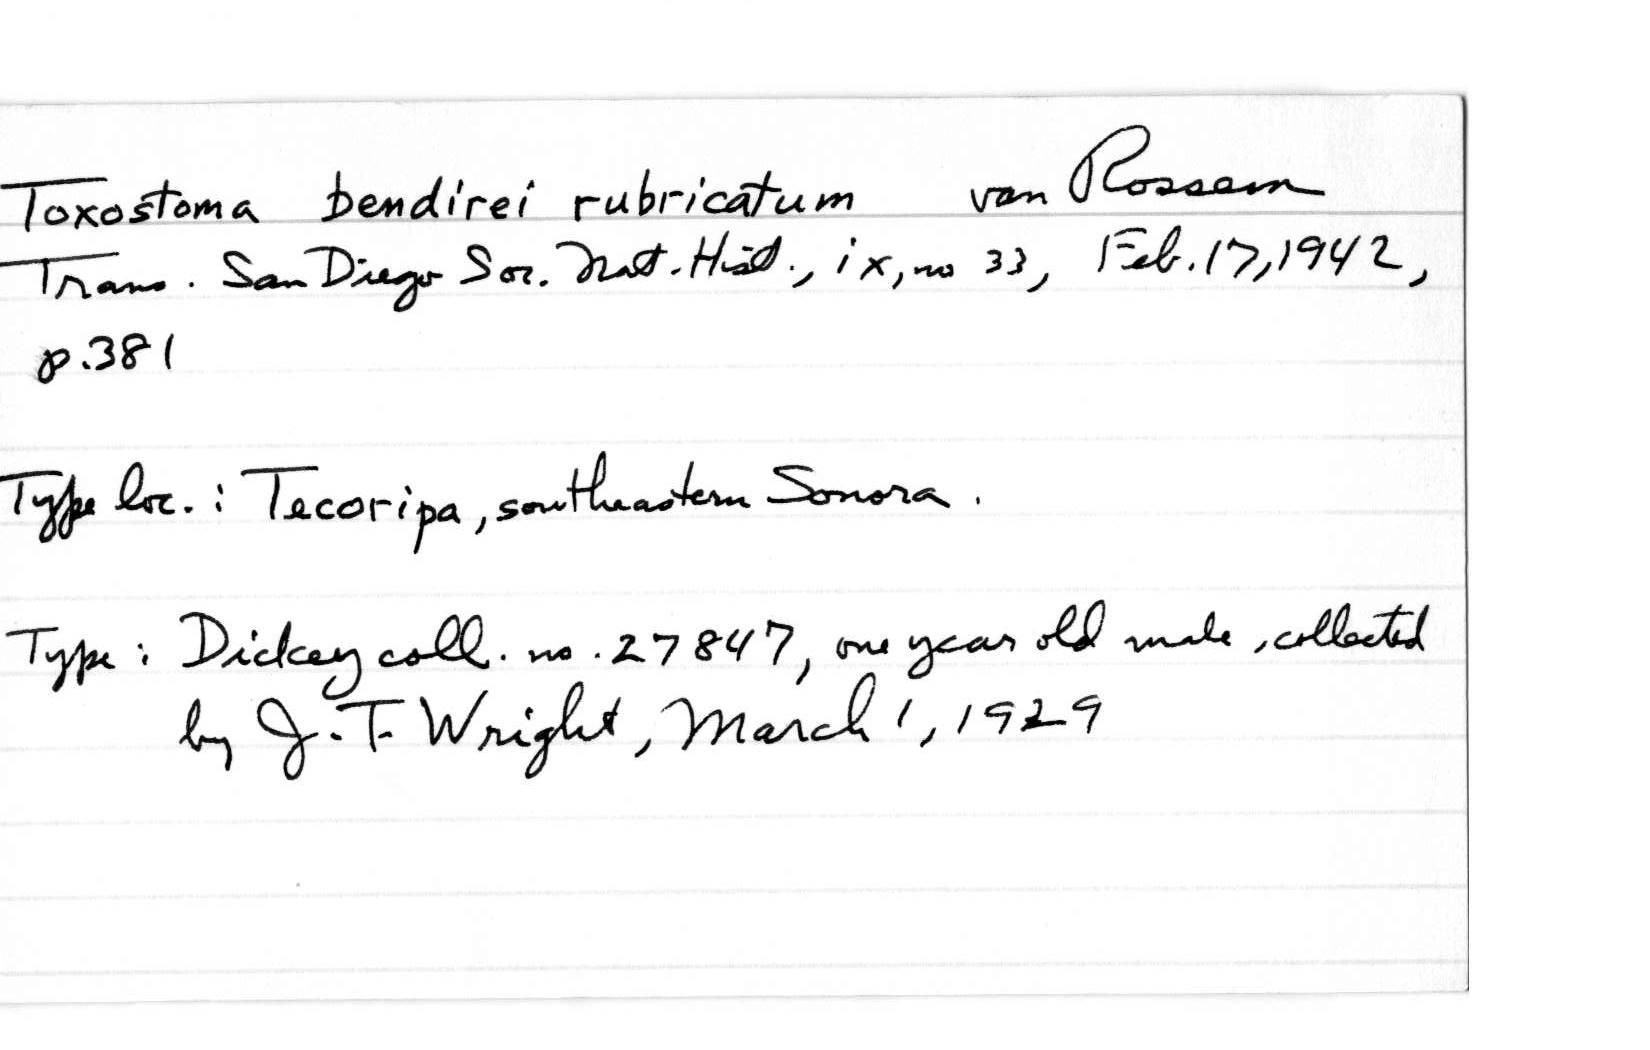 Toxostoma bendirei rubricatum van Rossem
Trans. San Diego Soc. Nat. Hist., ix, no 33, Feb. 17, 1942,
p. 381
Type loc. : Tecoripa, southeastern Sonora.
Type : Dickey coll. no. 27847, one year old male, collected
by J. T. Wright, March 1, 1929